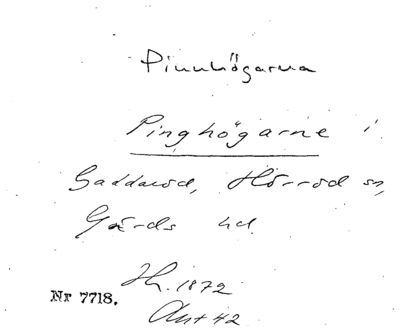 Pinnhögarna
Pinghögarne i
Gaddaröd, Hörröd sn,
Gärds hd.
Hn. 1872
Nr 7718.
Ant 42